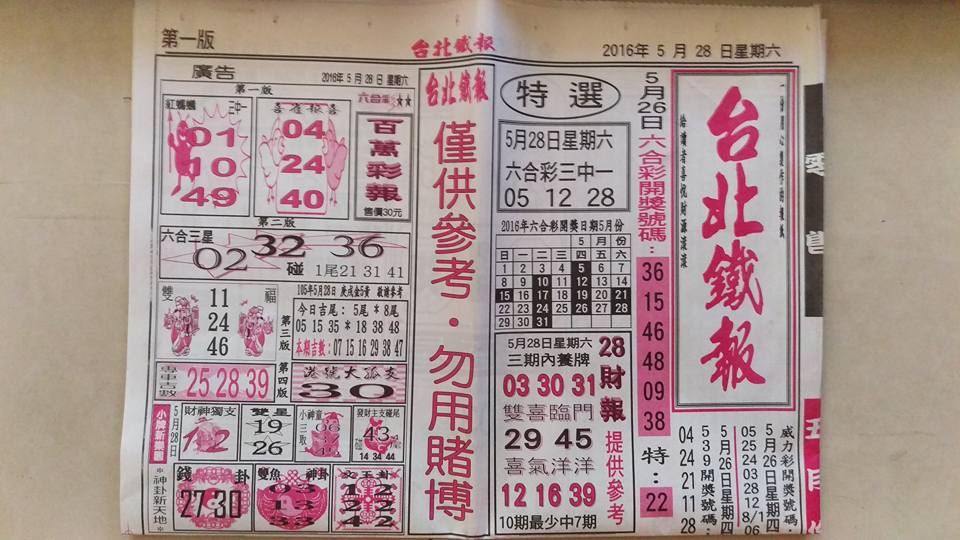 第一版
台北鐵報
2016年 5 月 28 日星期六
廣告
2016年 5 月 28 日星期六
第一版
六合彩 ★★
紅螞蟻
三中一
01
10
49
喜雀報喜
04
24
40
百萬彩報
售價30元
第二版
六合三星
02 32 36
碰 1尾21 31 41
雙
福
11
24
46
第三版
105年5月28日 庚戌金5黃 敬請參考
今日吉尾: 5尾 * 8尾
05 15 35 * 18 38 48
本期吉數: 07 15 16 29 38 47
第四版
專車吉數
25.28.39
港號大孤支
30
小牌新樂園
5月28日
財神獨支
12
雙星
19
26
小神童
三取
發財主支碰尾
43
14 34 44
*神卦新天地*
錢卦
27.30
雙魚神卦
03
13
33
12
22
42
台北鐵報
僅供參考・勿用賭博
特選
5月28日星期六
六合彩三中一
05 12 28
2016年六合彩開獎日期5月份
5 月 份
日 一 二 三 四 五 六
1 2 3 4 5 6 7
8 9 10 11 12 13 14
15 16 17 18 19 20 21
22 23 24 25 26 27 28
29 30 31
5月28日星期六
三期內養牌
03 30 31
雙喜臨門
29 45
喜氣洋洋
12 16 39
10期最少中7期
28財報
提供參考
5月26日六合彩開獎號碼:
36
15
46
48
09
38
特:
22
台北鐵報
給讀者喜悅財源滾滾
威力彩開獎號碼:
5月26日星期四
05 25 24 03 28 12 8/1 06
5月26日星期四
539開獎號碼:
04 24 21 11 28